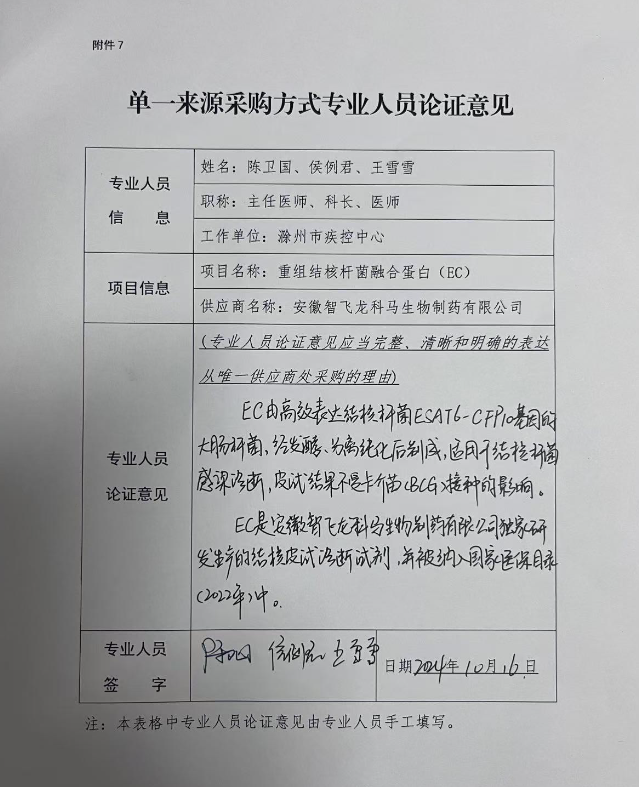 附件 7
单一来源采购方式专业人员论证意见
专业人员
信 息
姓名：陈卫国、侯例君、王雪雪
职称：主任医师、科长、医师
工作单位：滁州市疾控中心
项目信息
项目名称：重组结核杆菌融合蛋白（EC）
供应商名称：安徽智飞龙科马生物制药有限公司
专业人员
论证意见
(专业人员论证意见应当完整、清晰和明确的表达
从唯一供应商处采购的理由)
EC由高效表达结核杆菌ESAT6-CFP10基因的
大肠杆菌，经发酵、分离纯化后制成，适用于结核杆菌
感染诊断，皮试结果不受卡介苗(BCG)接种的影响。
EC是安徽智飞龙科马生物制药有限公司独家研
发生产的结核皮试诊断试剂，并被纳入国家医保目录
(2022年)中。
专业人员
签 字
陈卫国 侯例君 王雪雪
日期2024年10月16日
注：本表格中专业人员论证意见由专业人员手工填写。